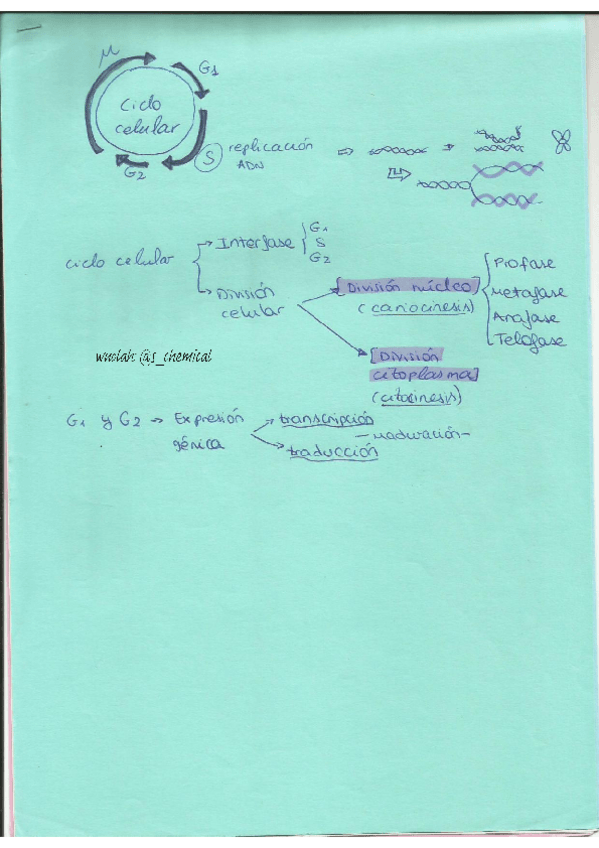 M
G1
Ciclo
celular
G2
S replicación
ADN
ciclo celular
Interfase
G1
S
G2
División
celular
[División núcleo]
(cariocinesis)
Profase
Metafase
Anafase
Telofase
[División
citoplasma]
(citocinesis)
wuolah: @s_chemical
G1 y G2 → Expresión
génica
transcripción
– maduración –
traducción